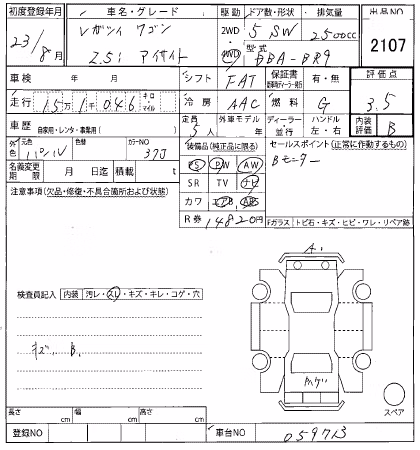 初度登録年月 車名・グレード 駆動 ドア数・形状 排気量 出品NO
23/8月 レガシィ ワゴン 2WD 5 SW 2500cc 2107
2.5i アイサイト 4WD 型式 DBA-BR9
車検 年 月 シフト FAT 保証書 有・無 評価点
走行 15万1千046 キロ マイル 冷房 AAC 燃料 G 3.5
車歴 自家用・レンタ・事業用( ) 定員 5人 外車モデル 年 ディーラー・並行 ハンドル 左・右 内装評価 B
外色 元色 パールV 色替 カラーNO 37J 装備品(純正品に限る) セールスポイント(正常に作動するもの)
PS PW AW Bモニター
名義変更期限 月 日迄 積載 t SR TV ナビ
注意事項(欠品・修復・不具合箇所および状態) カワ エアB ABS
R券 14820円 Fガラス トビ石・キズ・ヒビ・ワレ・リペア跡
A1
検査員記入 内装 汚レ・スレ・キズ・キレ・コゲ・穴
キズ、B.
スペア
長さ cm 幅 cm 高さ cm
登録NO 車台NO 059713